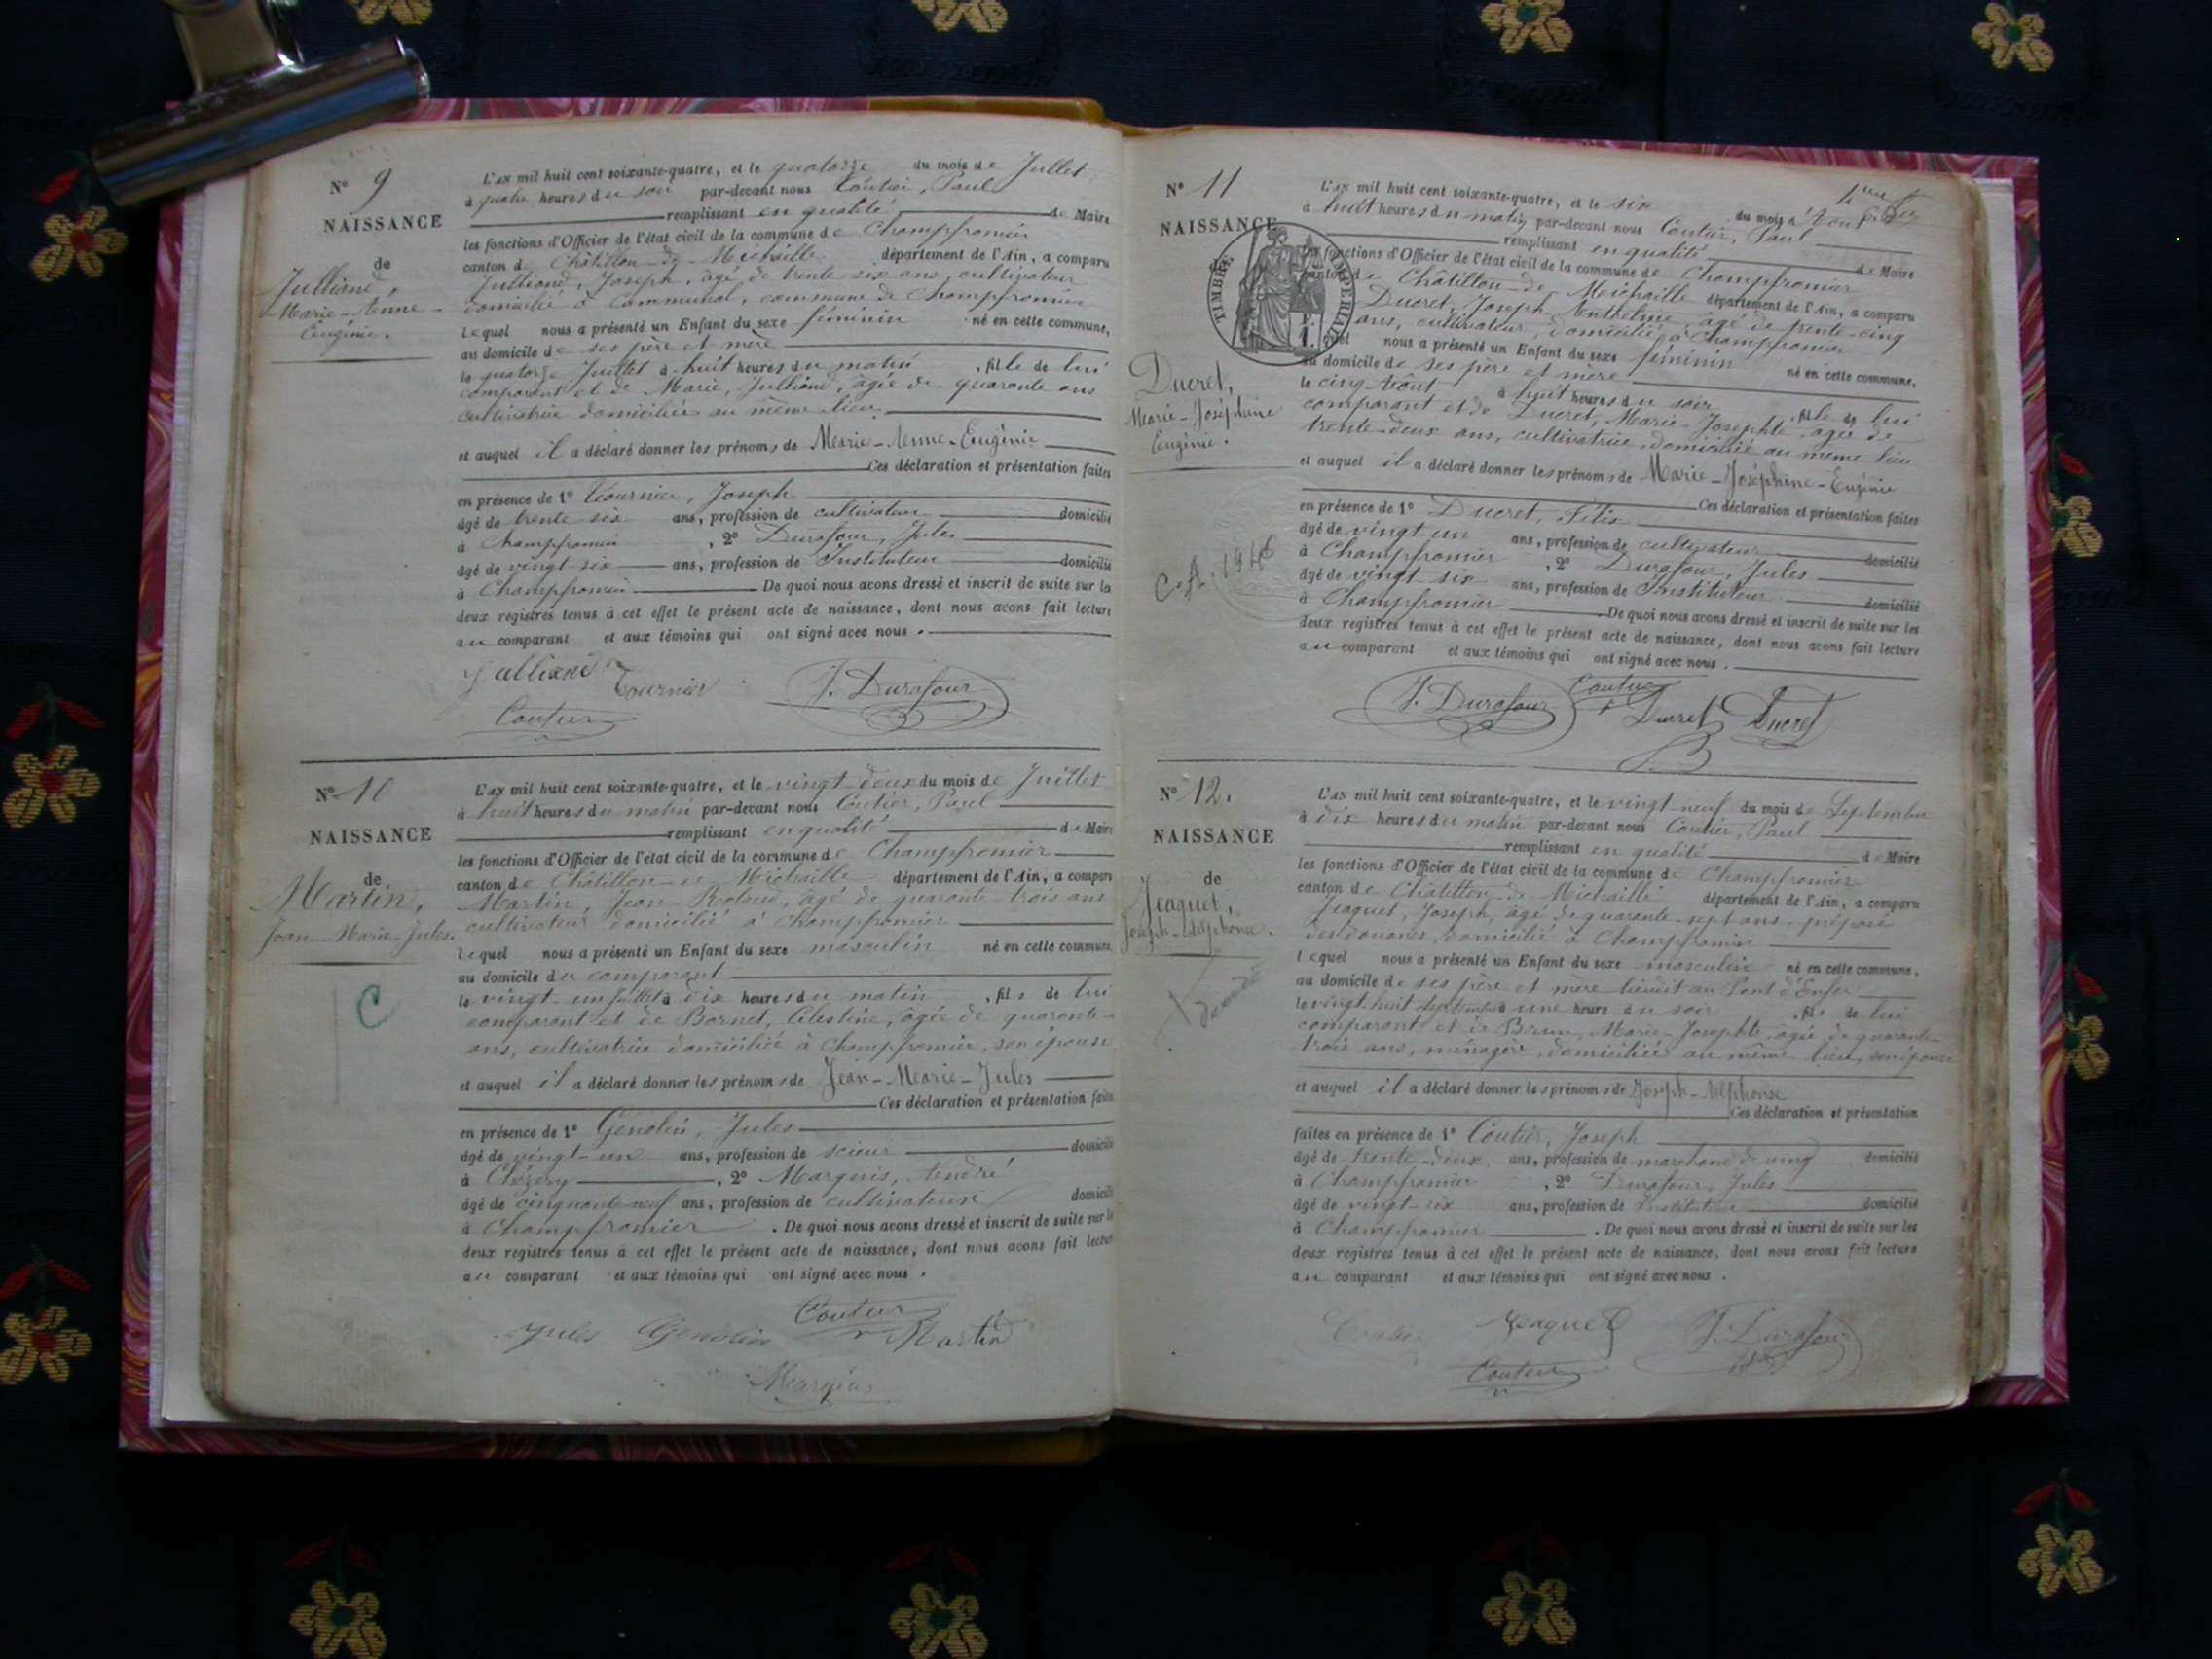 N° 9
NAISSANCE
de
Julliand,
Marie-Anne-
Eugénie.
L'an mil huit cent soixante-quatre, et le quatorze du mois de Juillet
à quatre heures du soir par-devant nous Coutier, Paul
remplissant en qualité de Maire
les fonctions d'Officier de l'état civil de la commune de Champfromier
canton de Châtillon-de-Michaille département de l'Ain, a comparu
Julliand, Joseph, âgé de trente-six ans, cultivateur
domicilié à Communal, commune de Champfromier
lequel nous a présenté un Enfant du sexe féminin né en cette commune,
au domicile de ses père et mère
le quatorze Juillet à huit heures du matin, fille de lui
comparant et de Marie, Julliand, âgée de quarante ans
cultivatrice domiciliée au même lieu
et auquel il a déclaré donner les prénoms de Marie-Anne-Eugénie
Ces déclaration et présentation faites
en présence de 1° Tournier, Joseph
âgé de trente six ans, profession de cultivateur domicilié
à Champfromier, 2° Durafour, Jules
âgé de vingt six ans, profession de Instituteur domicilié
à Champfromier De quoi nous avons dressé et inscrit de suite sur les
deux registres tenus à cet effet le présent acte de naissance, dont nous avons fait lecture
au comparant et aux témoins qui ont signé avec nous.
Julliand Tournier J. Durafour
Coutier
N° 10
NAISSANCE
de
Martin,
Jean-Marie-Jules.
C
L'an mil huit cent soixante-quatre, et le vingt deux du mois de Juillet
à huit heures du matin par-devant nous Coutier, Paul
remplissant en qualité de Maire
les fonctions d'Officier de l'état civil de la commune de Champfromier
canton de Châtillon-de-Michaille département de l'Ain, a comparu
Martin, Jean Roland, âgé de quarante-trois ans
cultivateur domicilié à Champfromier
lequel nous a présenté un Enfant du sexe masculin né en cette commune,
au domicile du comparant
le vingt-un Juillet à dix heures du matin, fils de lui
comparant et de Bornet, Célestine, âgée de quarante-
ans, cultivatrice domiciliée à Champfromier, son épouse
et auquel il a déclaré donner les prénoms de Jean-Marie-Jules
Ces déclaration et présentation faites
en présence de 1° Génolin, Jules
âgé de vingt-un ans, profession de scieur domicilié
à Chézery, 2° Marquis, André
âgé de cinquante-neuf ans, profession de cultivateur domicilié
à Champfromier. De quoi nous avons dressé et inscrit de suite sur les
deux registres tenus à cet effet le présent acte de naissance, dont nous avons fait lecture
au comparant et aux témoins qui ont signé avec nous.
Coutier
Jules Genolin Martin
Marquis
N° 11
NAISSANCE
TIMBRE IMPÉRIAL
Ducret,
Marie-Joséphine
Eugénie.
L'an mil huit cent soixante-quatre, et le six du mois d'Août
à huit heures du matin par-devant nous Coutier, Paul
remplissant en qualité de Maire
les fonctions d'Officier de l'état civil de la commune de Champfromier
canton de Châtillon-de-Michaille département de l'Ain, a comparu
Ducret, Joseph-Anthelme, âgé de trente-cinq
ans, cultivateur, domicilié à Champfromier
lequel nous a présenté un Enfant du sexe féminin né en cette commune,
au domicile de ses père et mère
le cinq Août à huit heures du soir, fille de lui
comparant et de Ducret, Marie-Josephte, âgée de
trente-deux ans, cultivatrice, domiciliée au même lieu
et auquel il a déclaré donner les prénoms de Marie-Joséphine-Eugénie
Ces déclaration et présentation faites
en présence de 1° Ducret, Félix
âgé de vingt un ans, profession de cultivateur domicilié
à Champfromier, 2° Durafour, Jules
âgé de vingt six ans, profession de Instituteur domicilié
à Champfromier De quoi nous avons dressé et inscrit de suite sur les
deux registres tenus à cet effet le présent acte de naissance, dont nous avons fait lecture
au comparant et aux témoins qui ont signé avec nous.
J. Durafour Coutier Ducret Ducret
N° 12.
NAISSANCE
de
Jeaquet,
Joseph-Alphonse.
L'an mil huit cent soixante-quatre, et le vingt-neuf du mois de Septembre
à dix heures du matin par-devant nous Coutier, Paul
remplissant en qualité de Maire
les fonctions d'Officier de l'état civil de la commune de Champfromier
canton de Châtillon-de-Michaille département de l'Ain, a comparu
Jeaquet, Joseph, âgé de quarante-sept ans, préposé
des douanes, domicilié à Champfromier
lequel nous a présenté un Enfant du sexe masculin né en cette commune,
au domicile de ses père et mère lieudit au Pont d'Enfer
le vingt-huit Septembre à une heure du soir, fils de lui
comparant et de Brun, Marie-Josephte, âgée de quarante-
trois ans, ménagère, domiciliée au même lieu, son épouse
et auquel il a déclaré donner les prénoms de Joseph-Alphonse
Ces déclaration et présentation
faites en présence de 1° Coutier, Joseph
âgé de trente-deux ans, profession de marchand de vins domicilié
à Champfromier, 2° Durafour, Jules
âgé de vingt-six ans, profession de Instituteur domicilié
à Champfromier. De quoi nous avons dressé et inscrit de suite sur les
deux registres tenus à cet effet le présent acte de naissance, dont nous avons fait lecture
au comparant et aux témoins qui ont signé avec nous.
Coutier Jeaquet J. Durafour
Coutier